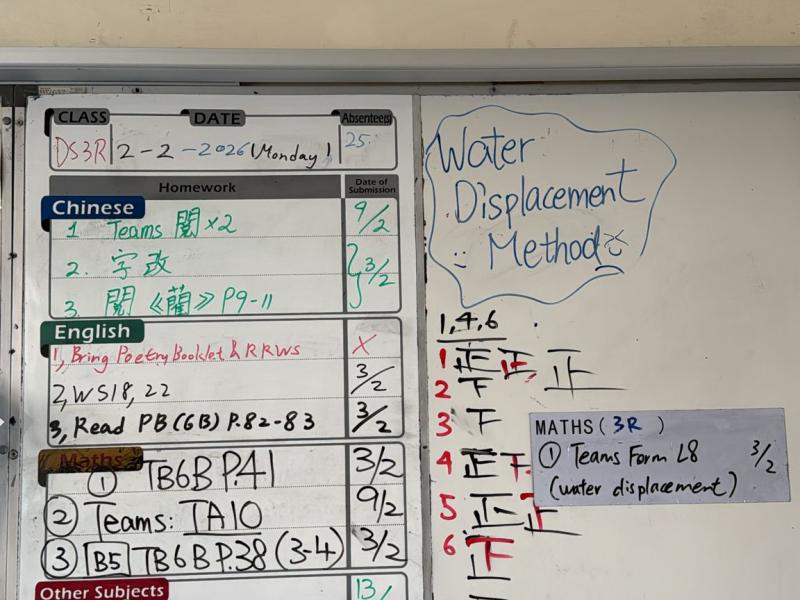 CLASS DATE Absentee(s)
DS3R 2-2-2026 (Monday) 25
Homework Date of Submission
Chinese
1. Teams 閱×2 9/2
2. 字改 3/2
3. 閱《蘭》P9-11
English
1, Bring Poetry Booklet & RRWS X
2, WS18, 22 3/2
3, Read PB (6B) P.82-83 3/2
Maths
① TB6B P.41 3/2
② Teams: TA10 9/2
③ B5 TB6B P.38 (3-4) 3/2
Other Subjects 13/
Water
Displacement
Method
1,4,6
1 正 正 正
2
3
4 正
5 正
6
MATHS ( 3R )
① Teams Form L8 3/2
(water displacement)